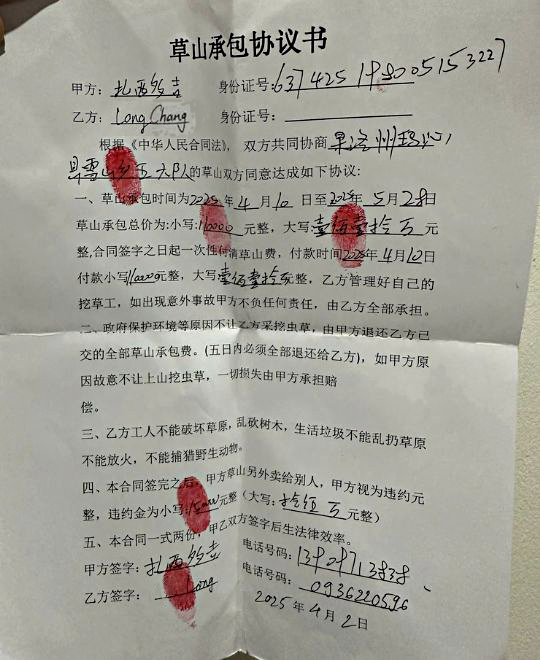 草山承包协议书
甲方：扎西多吉 身份证号：637425198005153227
乙方：Long Chang 身份证号：
根据《中华人民合同法》， 双方共同协商果洛州玛沁
县雪山乡五六队的草山双方同意达成如下协议：
一、草山承包时间为2025年4月10日至2025年5月28日
草山承包总价为：小写：元整，大写壹佰壹拾万元
整，合同签字之日起一次性付清草山费，付款时间2025年4月10日
付款小写元整，大写壹佰壹拾万元整，乙方管理好自己的
挖草工，如出现意外事故甲方不负任何责任，由乙方全部承担。
二、政府保护环境等原因不让乙方采挖虫草，由甲方退还乙方已
交的全部草山承包费。（五日内必须全部退还给乙方），如甲方原
因故意不让上山挖虫草，一切损失由甲方承担赔
偿。
三、乙方工人不能破坏草原，乱砍树木，生活垃圾不能乱扔草原
不能放火，不能捕猎野生动物。
四、本合同签完之后，甲方草山另外卖给别人，甲方视为违约元
整，违约金为小写：元整（大写：拾伍万元整）
五、本合同一式两份，甲乙双方签字后生法律效率。
甲方签字：扎西多吉 电话号码：13909713838
乙方签字：Long 电话号码：0936220596
2025年4月2日